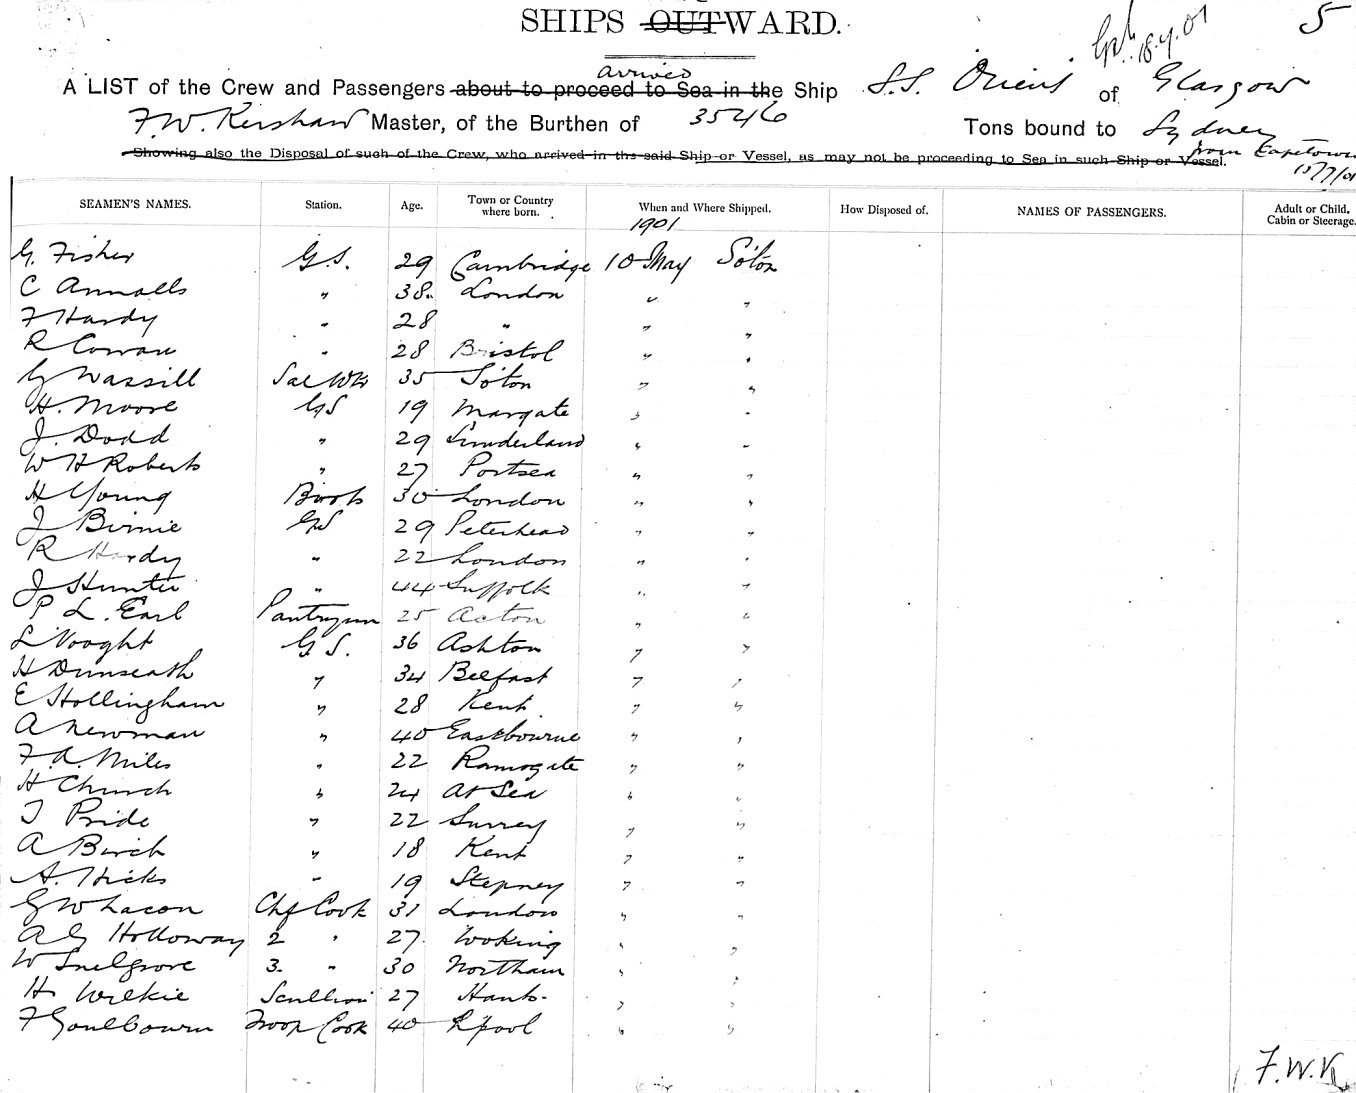 5
SHIPS OUTWARD.
18.7.01
arrived
A LIST of the Crew and Passengers about to proceed to Sea in the Ship S.S. Orient of Glasgow
F.W. Kershaw Master, of the Burthen of 3546 Tons bound to Sydney
from Capetown
Showing also the Disposal of such of the Crew, who arrived in the said Ship or Vessel, as may not be proceeding to Sea in such Ship or Vessel.
SEAMEN'S NAMES. Station. Age. Town or Country where born. When and Where Shipped. How Disposed of. NAMES OF PASSENGERS. Adult or Child, Cabin or Steerage.
1901
G. Fisher G.S. 29 Cambridge 10 May So'ton
C Annalls " 38 London " "
F Hardy " 28 " " "
R Cowan " 28 Bristol " "
G Wassill 35 So'ton " "
H. Moore GS 19 Margate " "
J. Dodd " 29 Sunderland " "
W H Roberts " 27 Portsea " "
H Young Boots 30 London " "
J Birnie GS 29 Peterhead " "
R Hardy " 22 London " "
J Hunter " 44 Suffolk " "
P L. Earl Pantryman 25 Acton " "
L Vooght G.S. 36 Ashton " "
H Dunseath " 34 Belfast " "
E Hollingham " 28 Kent " "
A Newman " 40 Eastbourne " "
F A. Miles " 22 Ramsgate " "
H Church " 24 At Sea " "
T Pride " 22 Surrey " "
A Birch " 18 Kent " "
A. Hicks " 19 Stepney " "
G W Lacon Chf Cook 31 London " "
A G Holloway 2 " 27 Woking " "
W Snelgrove 3. " 30 Northam " "
H Wilkie Scullion 27 Hants. " "
F Goulbourn Troop Cook 40 L'pool " "
F.W.K